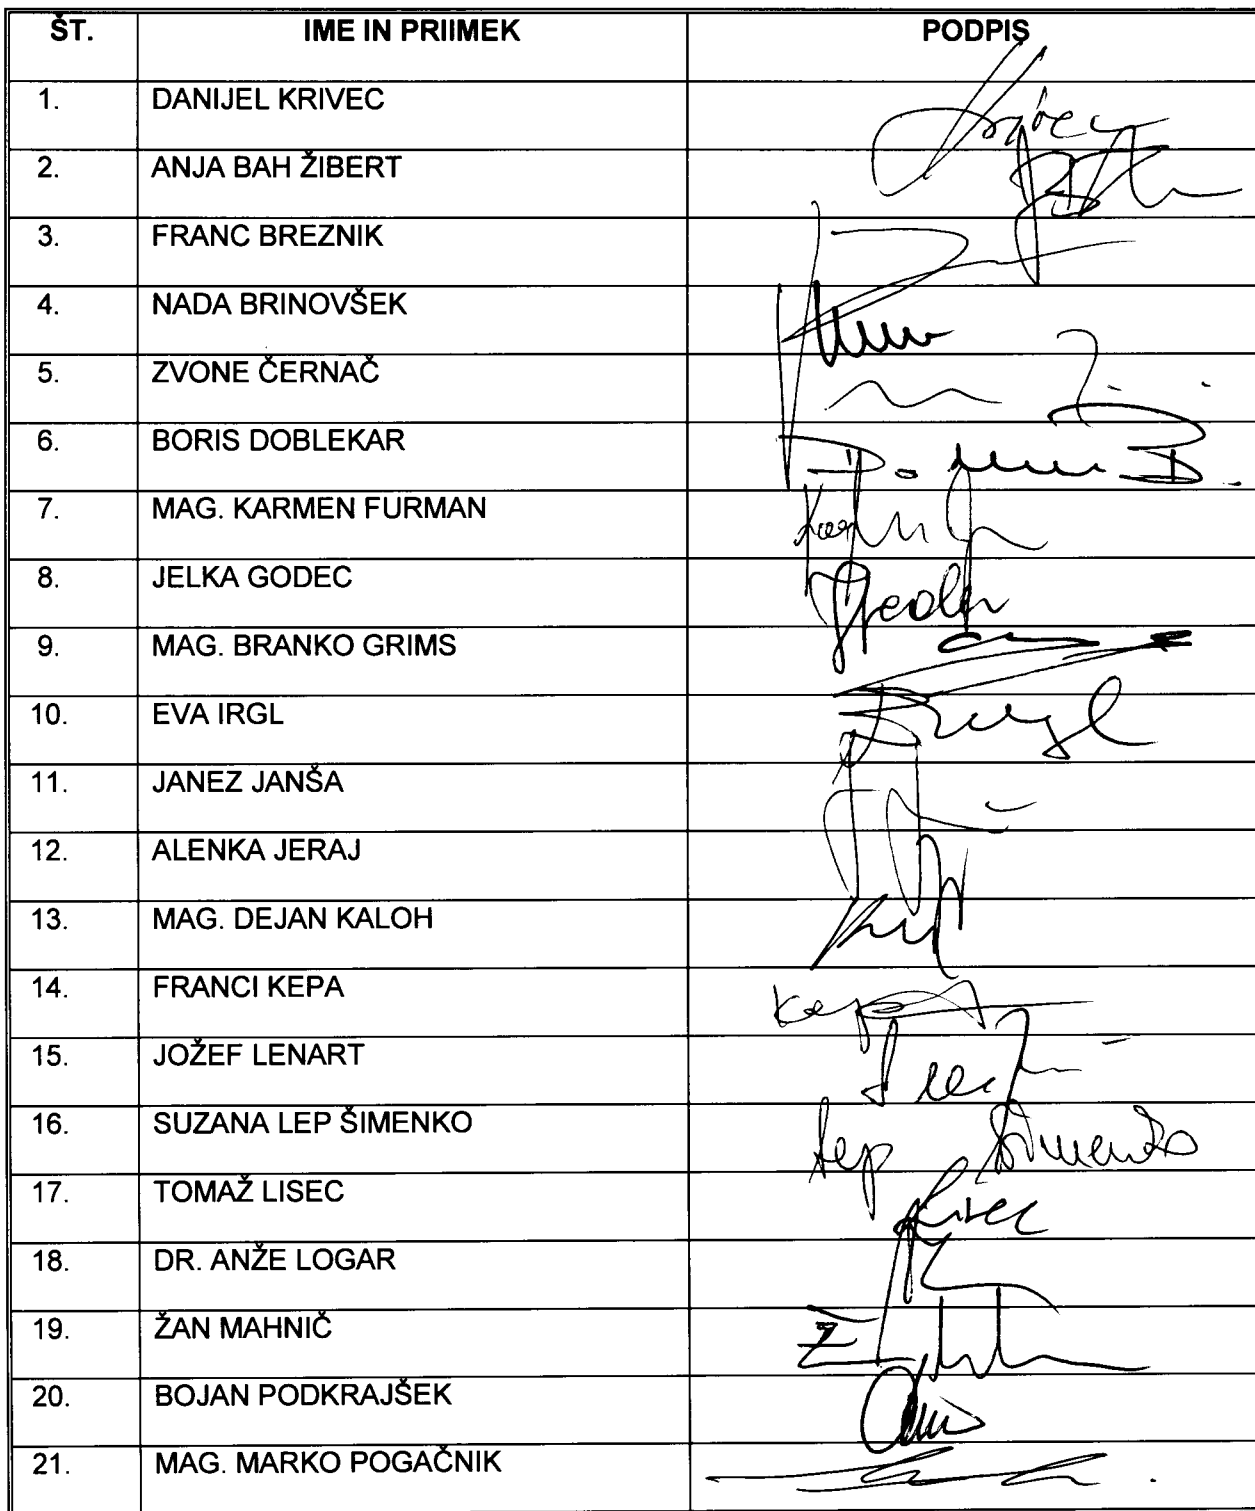 ŠT. IME IN PRIIMEK PODPIS
1. DANIJEL KRIVEC Krivec
2. ANJA BAH ŽIBERT
3. FRANC BREZNIK
4. NADA BRINOVŠEK
5. ZVONE ČERNAČ
6. BORIS DOBLEKAR
7. MAG. KARMEN FURMAN
8. JELKA GODEC
9. MAG. BRANKO GRIMS
10. EVA IRGL
11. JANEZ JANŠA
12. ALENKA JERAJ
13. MAG. DEJAN KALOH
14. FRANCI KEPA Kepa
15. JOŽEF LENART
16. SUZANA LEP ŠIMENKO Lep Šimenko
17. TOMAŽ LISEC Lisec
18. DR. ANŽE LOGAR
19. ŽAN MAHNIČ
20. BOJAN PODKRAJŠEK
21. MAG. MARKO POGAČNIK